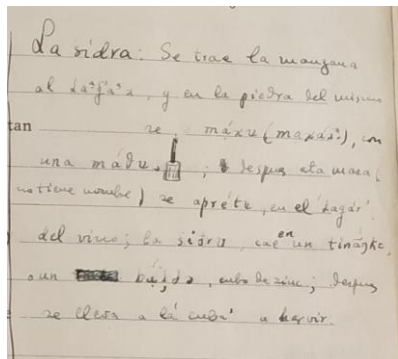 La sidra: Se trae la manzana
al y en la piedra del mismo
tan se máxu (maxár), con
una ; despues eta masa (
no tiene nombre) se apréte, en el
del vino; la sidra, cae en un
o un , cubo de zinc; despues
se lleva a lá cuba' a hervir.